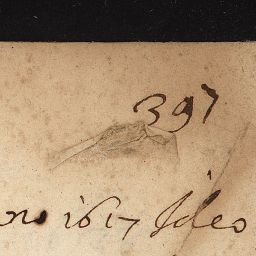 397
no 1617 Ideo